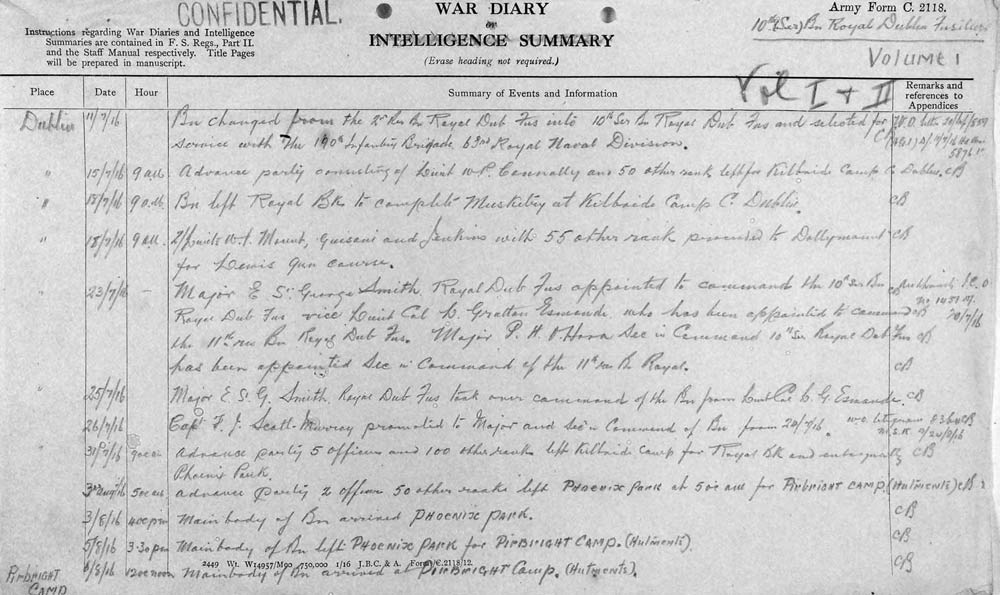 CONFIDENTIAL.
WAR DIARY
or
INTELLIGENCE SUMMARY
(Erase heading not required.)
Army Form C. 2118.
10th (Ser) Bn Royal Dublin Fusiliers
Volume 1
Vol I + II
Instructions regarding War Diaries and Intelligence
Summaries are contained in F. S. Regs., Part II.
and the Staff Manual respectively. Title Pages
will be prepared in manuscript.
Place Date Hour Summary of Events and Information Remarks and references to Appendices
Dublin 11/7/16 Bn changed from the Bn Royal Dub Fus into 10th Ser Bn Royal Dub Fus and selected for
service with the 190th Infantry Brigade 63rd Royal Naval Division. CB
" 15/7/16 9 a.m. Advance party consisting of Lieut Connolly and 50 other rank left for Kilbride Camp C. Dublin. CB
" 18/7/16 9 a.m. Bn left Royal Bks to complete Musketry at Kilbride Camp C. Dublin. CB
" 18/7/16 9 a.m. 2/Lieuts Mount, and Jenkins with 55 other rank proceeded to Dollymount CB
for Lewis Gun course.
" 23/7/16 — Major E St George Smith Royal Dub Fus appointed to command the 10th Ser Bn
Royal Dub Fus vice Lieut Col L. Gratton Esmonde who has been appointed to command CB 20/7/16
the 11th Res Bn Royal Dub Fus. Major P. H. O'Hara Sec in Command 10th Ser Royal Dub Fus CB
has been appointed Sec in Command of the 11th Res Bn Royal. CB
" 25/7/16 Major E. St. G. Smith, Royal Dub Fus took over command of the Bn from Lieut Col L. G. Esmonde. CB
26/7/16 Capt F. J. Scott-Murray promoted to Major and Sec in Command of Bn from 24/7/16. CB
31/7/16 9oc am Advance party 5 officers and 100 other ranks left Kilbride Camp for Royal Bk and CB
Phoenix Park.
3rd Aug/16 5oc am Advance party 2 officers 50 other ranks left PHOENIX PARK at 5oc am for PIRBRIGHT CAMP. (Hutments) CB
3/8/16 4oc pm Main body of Bn arrived PHOENIX PARK. CB
5/8/16 3.30 pm Main body of Bn left PHOENIX PARK for PIRBRIGHT CAMP. (Hutments). CB
PIRBRIGHT CAMP 6/8/16 12oc noon Main body of Bn arrived at PIRBRIGHT Camp. (Hutments). CB
2449 Wt. W14957/M90 750,000 1/16 J.B.C. & A. Forms/C.2118/12.